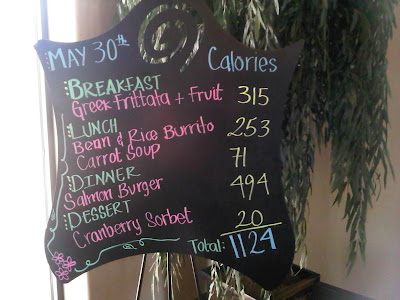 MAY 30th
Calories
BREAKFAST
Greek Frittata + Fruit 315
LUNCH
Bean & Rice Burrito 253
Carrot Soup 71
DINNER
Salmon Burger 494
DESSERT
Cranberry Sorbet 20
Total: 1124